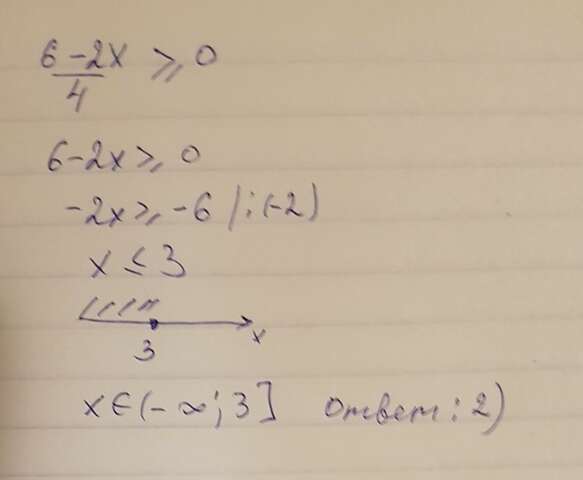 6-2x ≥ 0
4
6-2x ≥ 0
-2x ≥ -6 /:(-2)
x ≤ 3
3 x
x∈(-∞; 3] ответ: 2)